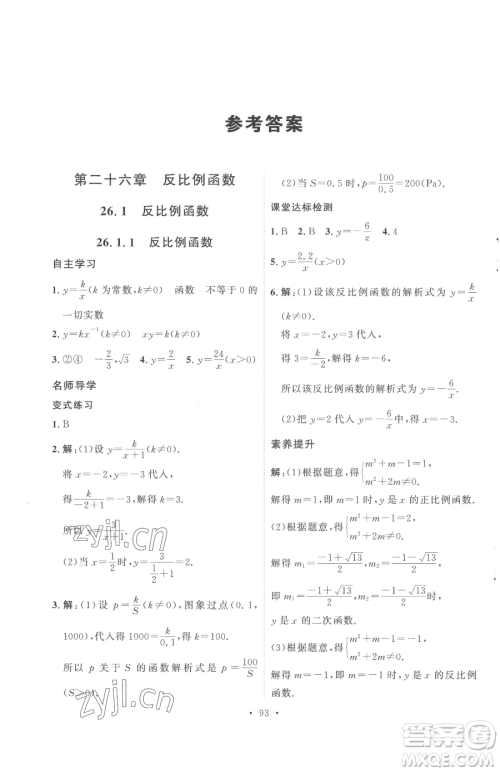 参考答案
第二十六章 反比例函数
26.1 反比例函数
26.1.1 反比例函数
自主学习
1. y=k/x(k 为常数,k≠0) 函数 不等于 0 的
一切实数
2. y=kx⁻¹(k≠0) xy=k(k≠0)
3. ②④ -2/3,√3 4. y=2/x 5. y=24/x(x>0)
名师导学
变式练习
1. B
2. 解:(1)设 y=k/(x+1)(k≠0).
将 x=-2,y=-3 代入,
得 k/(-2+1)=-3,解得 k=3.
所以 y=3/(x+1).
(2)当 x=1/2时,y=3/(1/2+1)=2.
3. 解:(1)设 p=k/S,图象过点(0.1,
1000),代入得 1000=k/0.1,得 k=100.
所以 p 关于 S 的函数解析式是 p=100/S
(S>0).
(2)当 S=0.5 时,p=100/0.5=200(Pa).
课堂达标检测
1. B 2. B 3. y=-6/z 4. 4
5. y=2.2/x(x>0)
6. 解:(1)设该反比例函数的解析式为 y=k/x(k≠0).
将 x=-2,y=3 代入,
得 3=k/-2,解得 k=-6,
所以该反比例函数的解析式为 y=-6/x.
(2)把 y=2 代入 y=-6/x,得 x=-3.
素养提升
解:(1)根据题意,得{m²+m-1=1, m²+2m≠0.
解得 m=1.此时,y 是 x 的正比例函数.
(2)根据题意,得{m²+m-1=2, m²+2m≠0.
解得 m₁=(-1+√13)/2,m₂=(-1-√13)/2,
即 m₁=(-1+√13)/2,m₂=(-1-√13)/2时,
y 是 x 的二次函数.
(3)根据题意,得{m²+m-1=-1, m²+2m≠0.
解得 m=-1.此时,y 是 x 的反比例
函数.
· 93 ·
zyjl.cn
zyjl.cn
答案圈
MXQE.COM